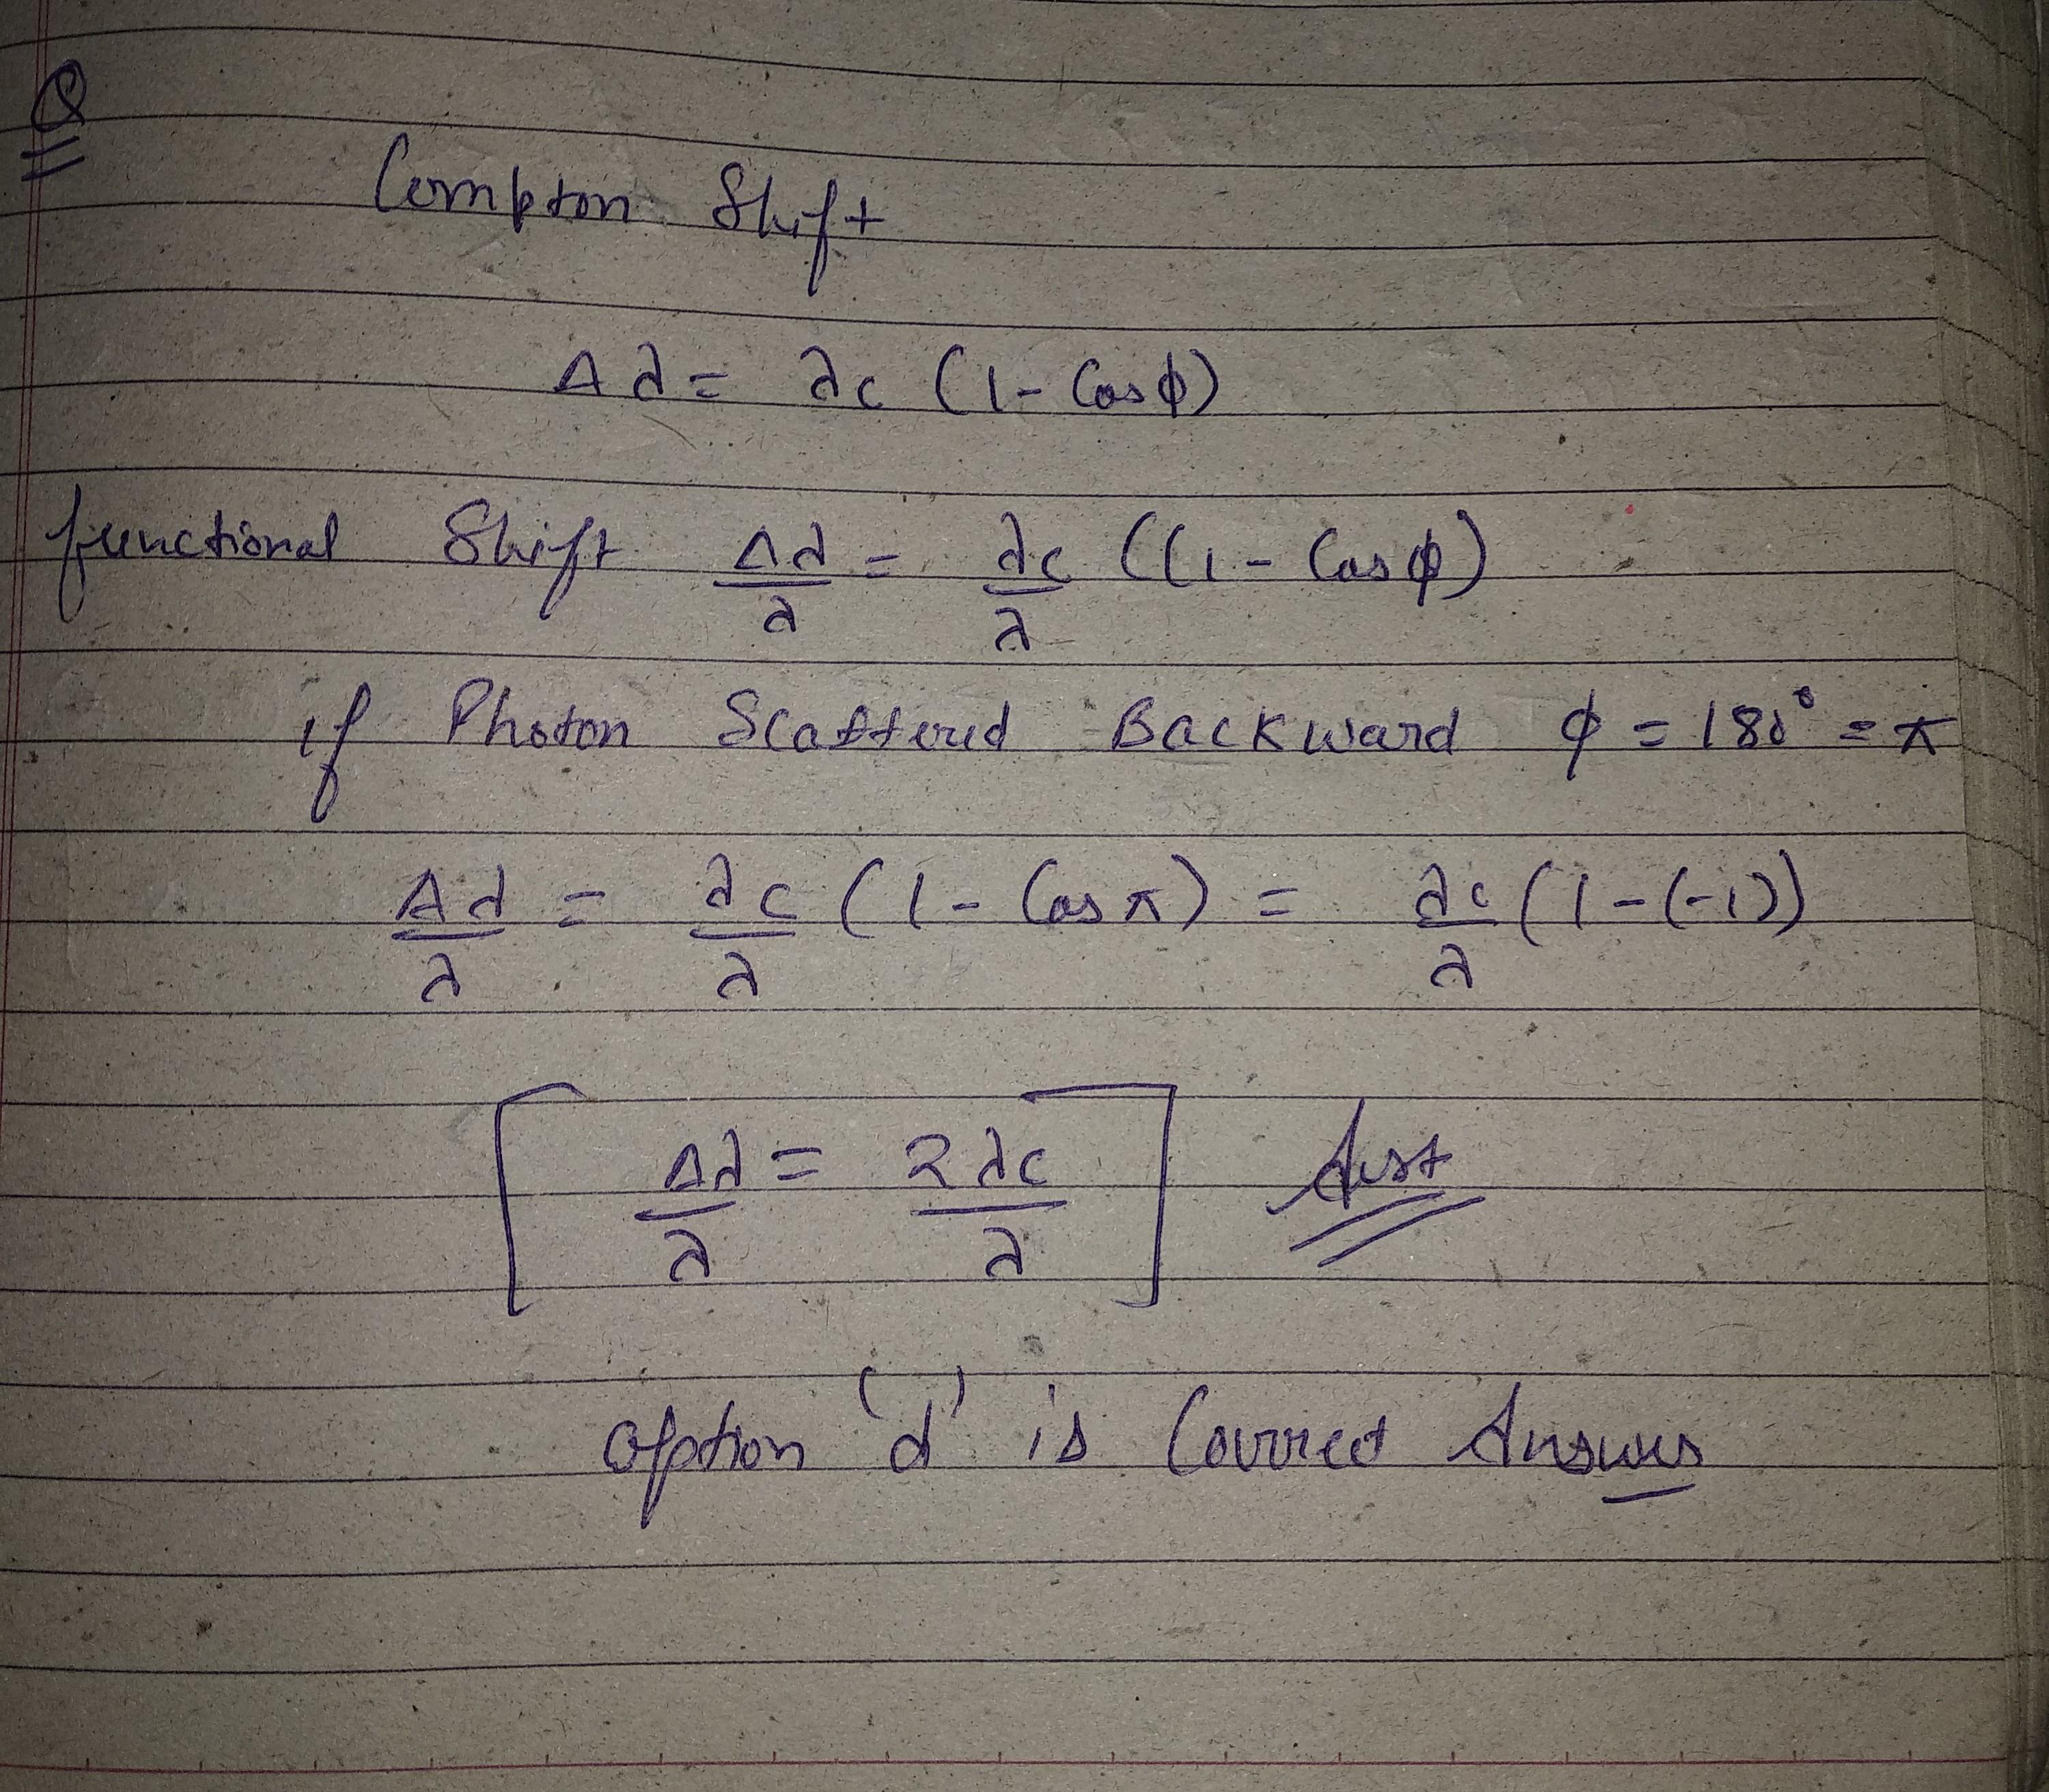 Q
Compton Shift
Δλ = λc (1 - Cosϕ)
functional Shift Δλ/λ = λc/λ ((1 - Cosϕ)
if Photon Scattered Backward ϕ = 180° = π
Δλ/λ = λc/λ (1 - Cosπ) = λc/λ (1 - (-1))
[Δλ/λ = 2λc/λ]
option 'd' is Correct Answer